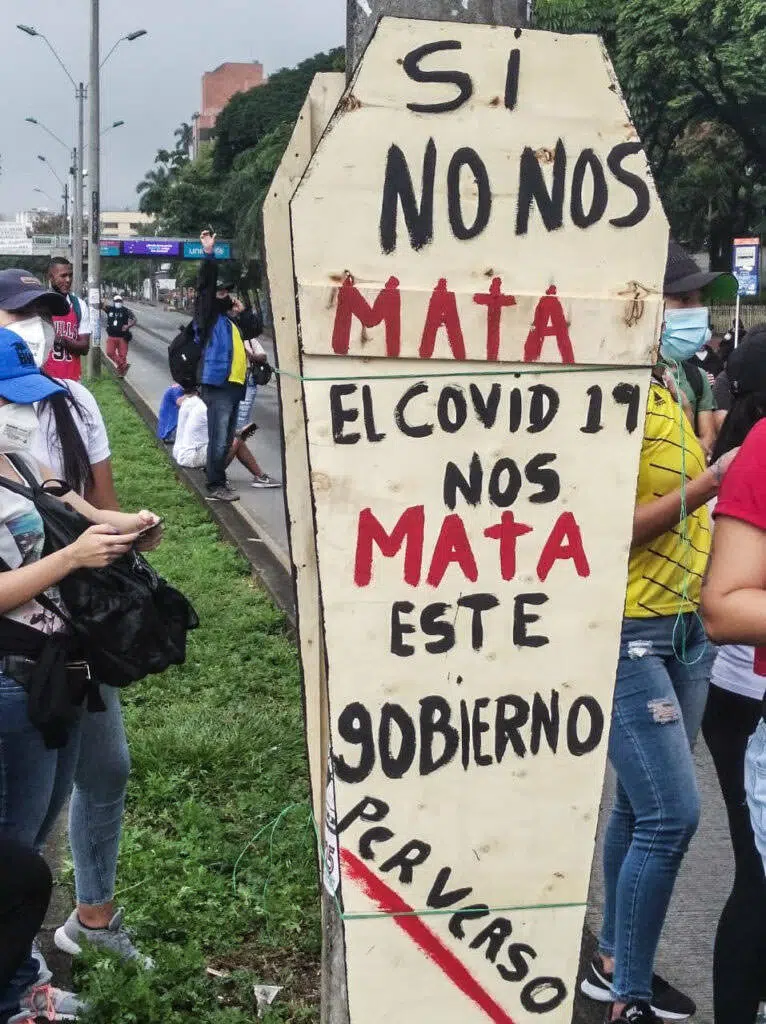 SI
NO NOS
MATA
EL COVID 19
NOS
MATA
ESTE
GOBIERNO
PERVCASO